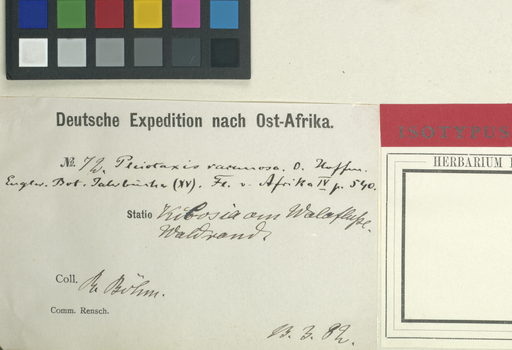 Deutsche Expedition nach Ost-Afrika.
№ 72. Pleiotaxis racemosa. O. Hoffm.
Engler. Bot. Jahrbücher (XV). Fl. v. Afrika IV p. 540.
Statio am Walaflusse.
Waldrand.
Coll. R. Böhm.
Comm. Rensch.
3. 82.
ISOTYPUS
HERBARIUM